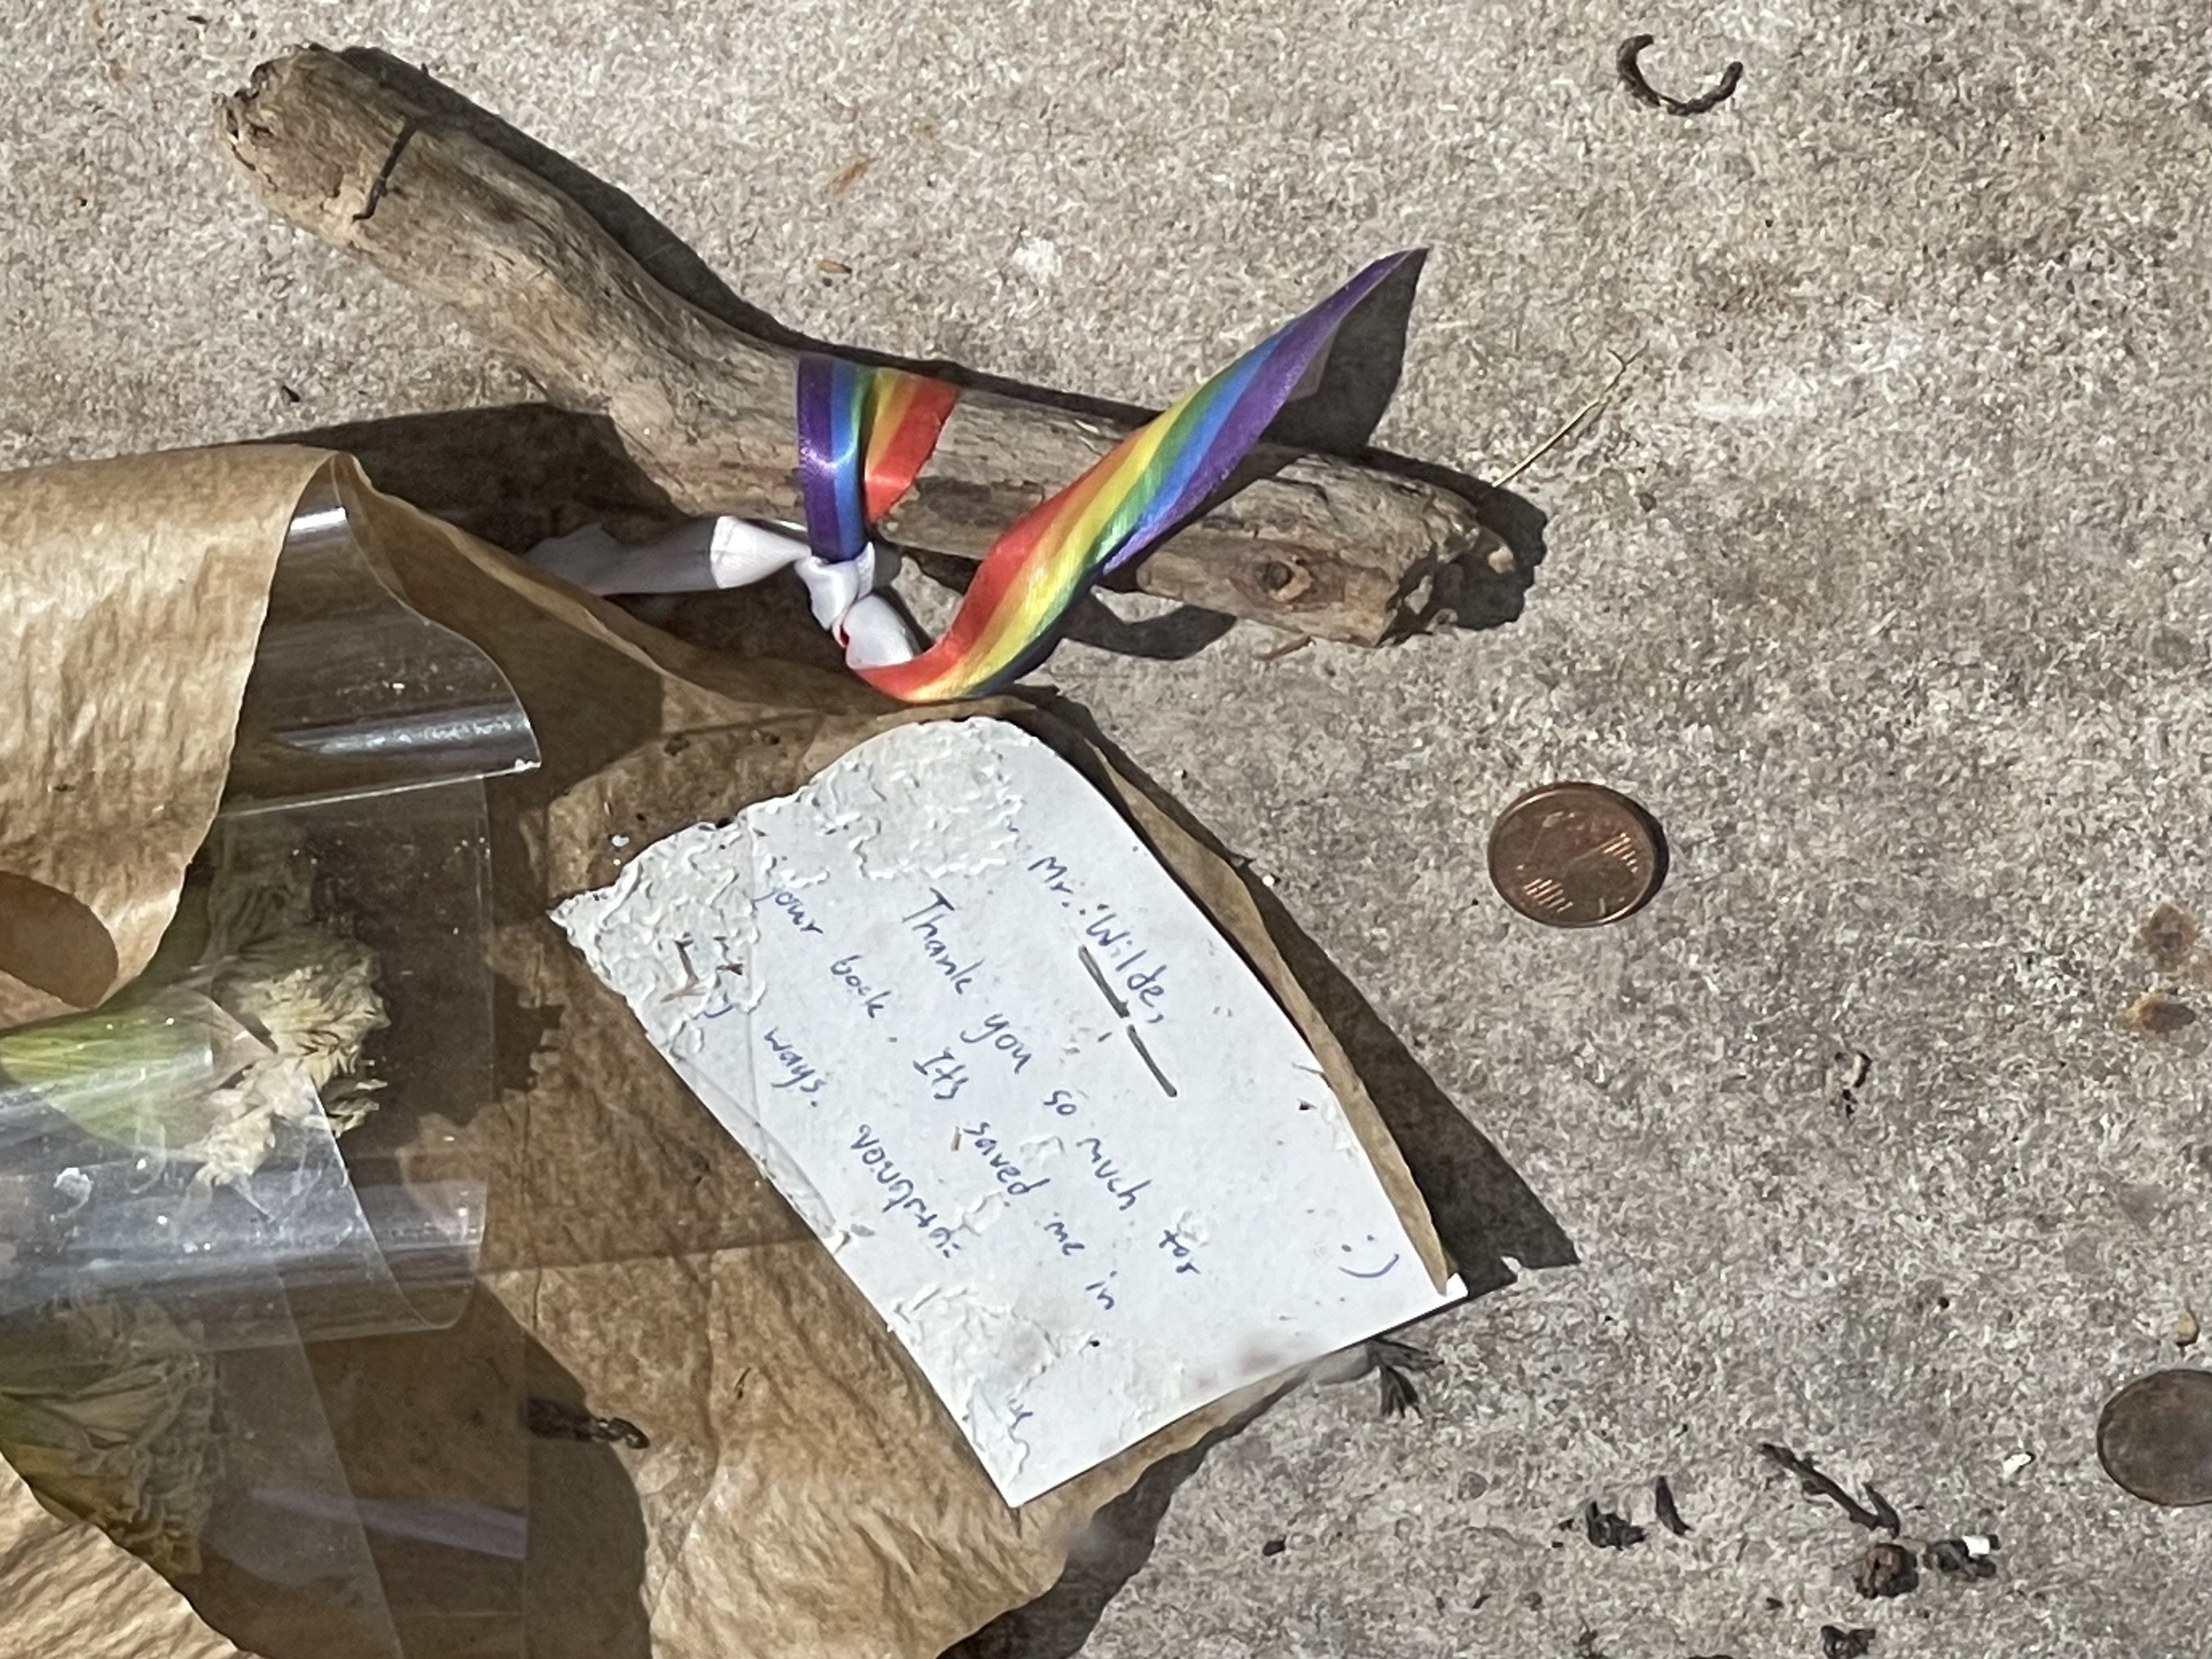 Mr. Wilde,
Thank you so much for
your book. Its saved me in
ways.
:)